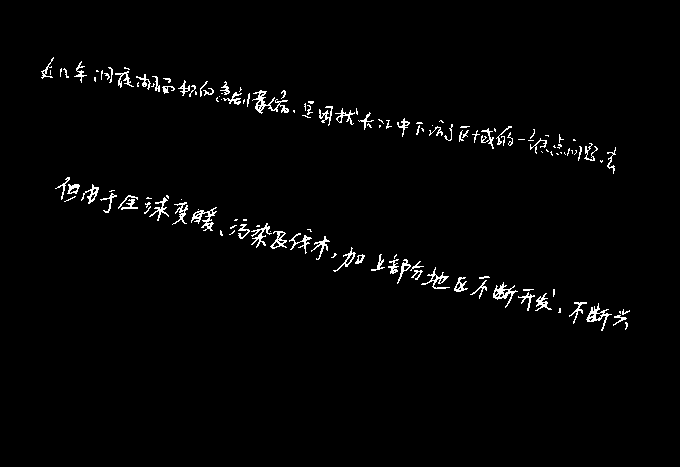 近几年洞庭湖面积的急剧萎缩,是困扰长江中下游区域的一焦点问题.
但由于全球变暖、污染及伐木,加上部分地区不断开发,不断兴